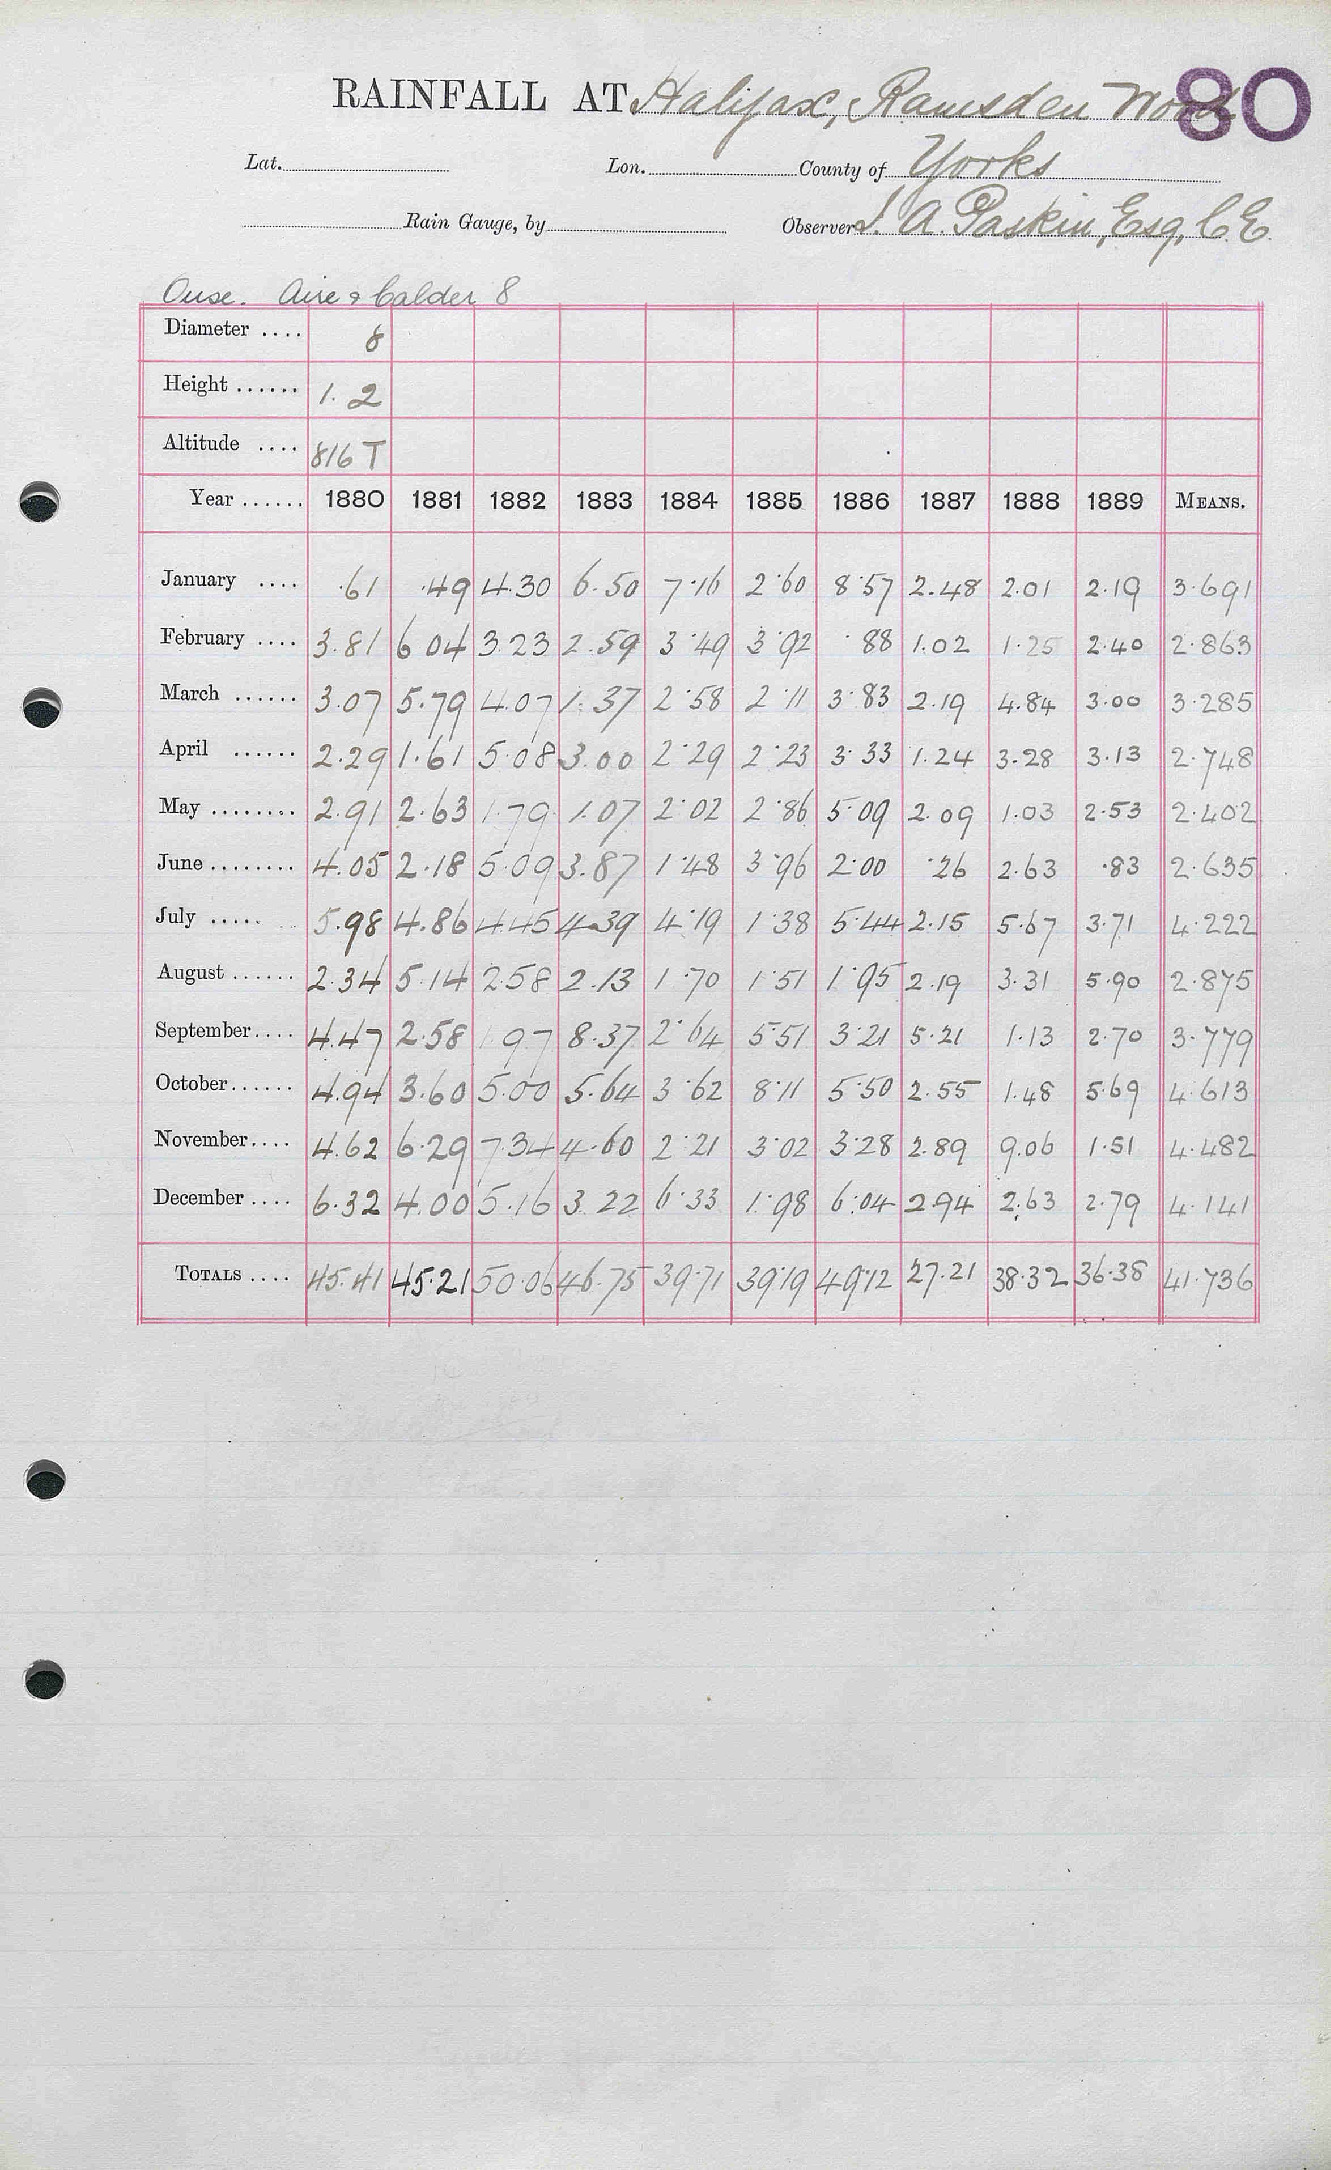 RAINFALL AT Halifax, Ramsden Wood 80
Lat. Lon. County of Yorks
Rain Gauge, by Observer J. A. Paskin, Esq, C.E.
Ouse. Aire & Calder 8
Diameter .... 8
Height ...... 1. 2
Altitude .... 816 T
Year ...... 1880 1881 1882 1883 1884 1885 1886 1887 1888 1889 MEANS.
January .... .61 .49 4.30 6.50 7.16 2.60 8.57 2.48 2.01 2.19 3.691
February .... 3.81 6 04 3 23 2.59 3.49 3.92 .88 1.02 1.25 2.40 2.863
March ...... 3.07 5.79 4.07 1.37 2.58 2.11 3.83 2.19 4.84 3.00 3.285
April ...... 2.29 1.61 5.08 3.00 2.29 2.23 3.33 1.24 3.28 3.13 2.748
May ........ 2.91 2.63 1.79 1.07 2.02 2.86 5.09 2.09 1.03 2.53 2.402
June ........ 4.05 2.18 5.09 3.87 1.48 3.96 2.00 .26 2.63 .83 2.635
July ..... 5.98 4.86 4.45 4.39 4.19 1.38 5.44 2.15 5.67 3.71 4.222
August ...... 2.34 5.14 2.58 2.13 1.70 1.51 1.95 2.19 3.31 5.90 2.875
September.... 4.47 2.58 1.97 8.37 2.64 5.51 3.21 5.21 1.13 2.70 3.779
October...... 4.94 3.60 5.00 5.64 3.62 8.11 5.50 2.55 1.48 5.69 4.613
November.... 4.62 6.29 7.34 4.60 2.21 3.02 3.28 2.89 9.06 1.51 4.482
December .... 6.32 4.00 5.16 3.22 6.33 1.98 6.04 2.94 2.63 2.79 4.141
TOTALS .... 45.41 45.21 50.06 46.75 39.71 39.19 49.12 27.21 38.32 36.38 41.736